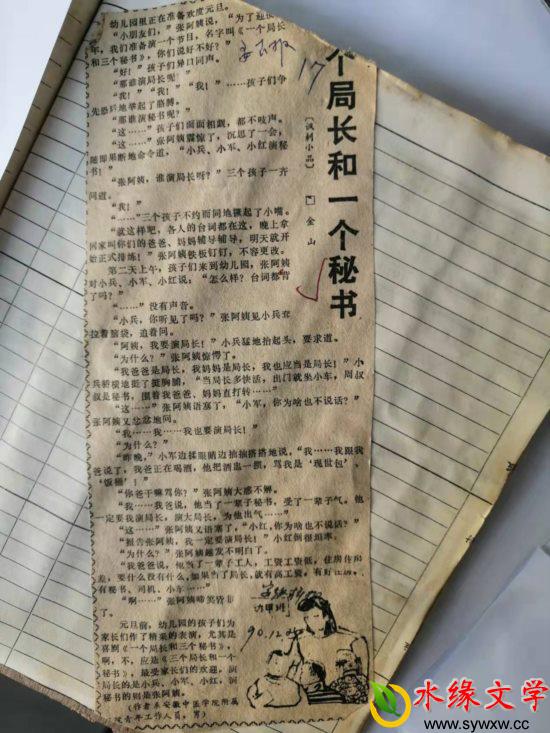 个局长和一个秘书
〔讽刺小品〕
金山
17
幼儿园里正在准备欢度元旦。
“小朋友们，”张阿姨说，“为了迎接
年，我们准备演一个节目，名字叫《一个局长
和三个秘书》，你们说好不好？”
“好！”孩子们异口同声。
“那谁演局长呢？”
“我！”“我！”“我！”……孩子们争
先恐后地举起了胳膊。
“那谁演秘书呢？”
“这……”孩子们面面相觑，都不吱声。
“这……”张阿姨震惊了，沉思了一会，
随即果断地命令道，“小兵、小军、小红演秘
书！”
“张阿姨，谁演局长呀？”三个孩子一齐
问道。
“我！”
“……”三个孩子不约而同地撅起了小嘴。
“就这样吧，各人的台词都在这，晚上拿
回家叫你们的爸爸、妈妈辅导辅导，明天就开
始正式排练！”张阿姨铁板钉钉，不容更改。
第二天上午，孩子们来到幼儿园，张阿姨
对小兵、小军、小红说：“怎么样？台词都背
了吗？”
“……”没有声音。
“小兵，你听见了吗？”张阿姨见小兵耷
拉着脑袋，追着问。
“阿姨，我要演局长！”小兵猛地抬起头，要求道。
“为什么？”张阿姨惊愕了。
“我爸爸是局长，我妈妈是局长，我也应当是局长！”小
兵骄横地挺了挺胸脯，“当局长多快活，出门就坐小车，周叔
叔是秘书，围着我爸爸、妈妈直打转……”
“这……”张阿姨语塞了，“小军，你为啥也不说话？”
张阿姨又忿忿地问。
“我……我……我也要演局长！”
“为什么？”
“昨晚，”小军边揉眼睛边抽抽搭搭地说，“我……我跟我
爸说了，我爸正在喝酒，他把酒盅一掼，骂我是‘现世包’、
‘饭桶’！”
“你爸干嘛骂你？”张阿姨大惑不解。
“我……我爸说，他当了一辈子秘书，受了一辈子气。他
一定要我演局长，演大局长，为他出气……”
“这……”张阿姨又语塞了，“小红，你为啥也不说话？”
“报告张阿姨，我一定要演局长！”小红倒很坦率。
“为什么？”张阿姨越发不明白了。
“我爸爸说，他当了一辈子工人，工资工资低，住房住房
差，要什么没有什么，如果当了局长，就有高工资，有好
有秘书、司机、小车……”
“啊……”张阿姨啼笑皆非
了。
元旦前，幼儿园的孩子们为
家长们作了精采的表演，尤其是
喜剧《一个局长和三个秘书》，
啊，不，应是《三个局长和一个
秘书》，最受家长们的欢迎，演
局长的是小兵、小军、小红，演
秘书的则是张阿姨。
（作者系安徽中医学院附属
医院青年工作人员，男）
90.12.
水缘文学
www.sywxw.cn